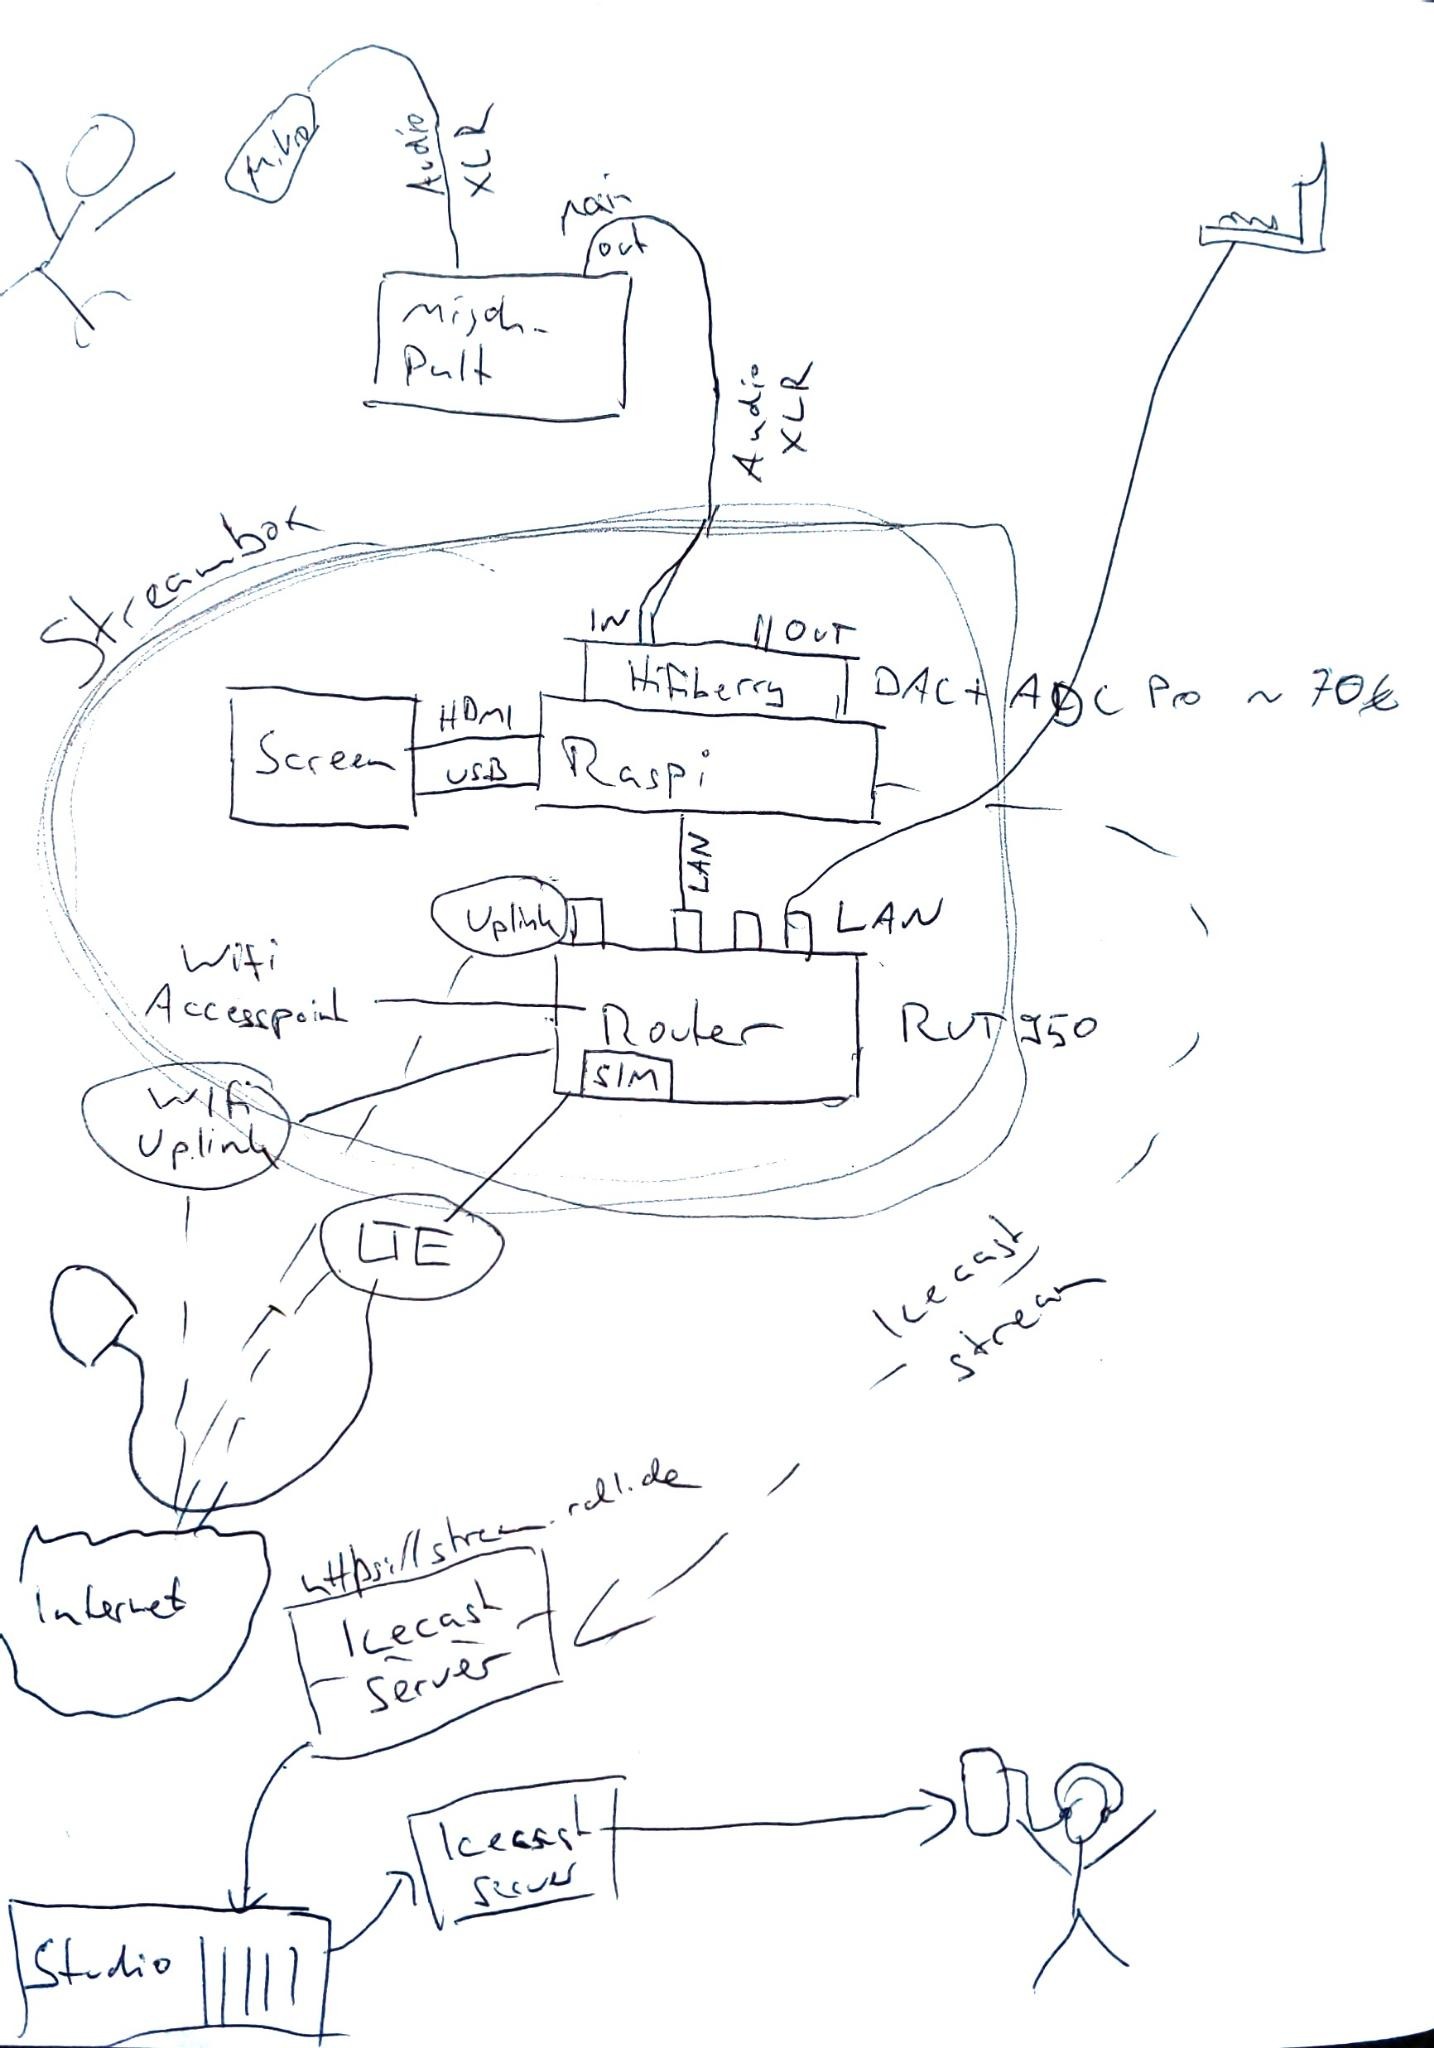 Mikro
Audio
XLR
main
out
Misch-
Pult
Audio
XLR
Streambox
IN
OUT
Hifiberry
DAC+ ADC Pro ~ 70€
Screen
HDMI
USB
Raspi
LAN
Uplink
LAN
Wifi
Accesspoint
Router
RUT 950
SIM
Wifi
Uplink
LTE
Icecast
stream
https://stream.rdl.de
Internet
Icecast
Server
Icecast
Server
Studio